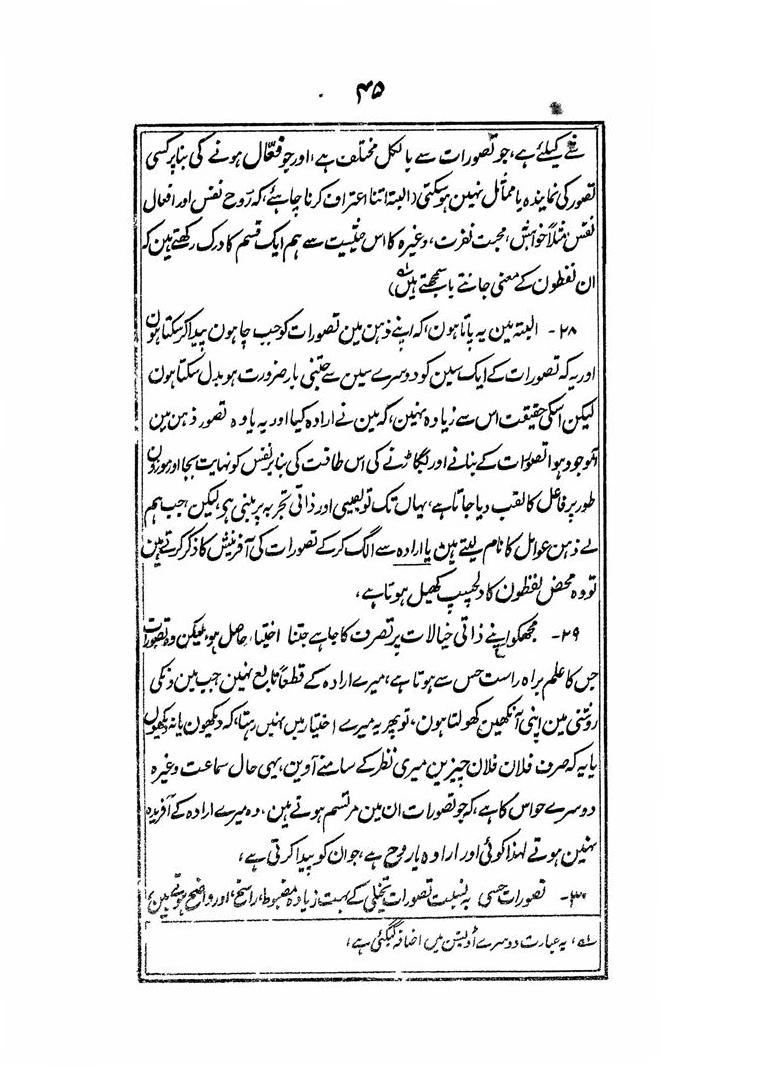 ۴۵
شے کیلئے ہے، جو تصورات سے بالکل مختلف ہے، اور جو فعّال ہونے کی بنا پر کسی
تصور کی نمایندہ یا مماثل نہین ہوسکتی (البتہ اتنا اعتراف کرنا چاہئے، کہ رُوح نفس اور افعال
نفس مثلاً خواہش، محبت نفرت، وغیرہ کا اس حیثیت سے ہم ایک قسم کا درک رکھتے ہین کہ
ان لفظون کے معنی جانتے یا سمجھتے ہیں)
۲۸- البتہ مین یہ پاتا ہون، کہ اپنے ذہن مین تصورات کو جب چاہون پیدا کرسکتا ہون
اور یہ کہ تصورات کے ایک سین کو دوسرے سین سے جتنی بار ضرورت ہو بدل سکتا ہون
لیکن اسکی حقیقت اس سے زیادہ نہین، کہ مین نے ارادہ کیا اور یہ یا وہ تصور ذہن مین
آموجود ہوا تصوّرات کے بنانے اور بگاڑنے کی اس طاقت کی بنا پر نفس کو نہایت بجا اور موزون
طور پر فاعل کا لقب دیا جاتا ہے، یہاں تک تو یقینی اور ذاتی تجربہ پر مبنی ہی، لیکن جب ہم
بے ذہن عوامل کا نام لیتے ہین یا ارادہ سے الگ کرکے تصورات کی آفرینش کا ذکر کرتے ہین
تو وہ محض لفظون کا دلچسپ کھیل ہوتا ہے،
۲۹- مجھکو اپنے ذاتی خیالات پر تصرف کا چاہے جتنا اختیار حاصل ہو، لیکن وہ تصورات
جن کا علم براہ راست حس سے ہوتا ہے، میرے ارادہ کے قطعاً تابع نہین جب مین دن کی
روشنی مین اپنی آنکھین کھولتا ہون، تو پھر یہ میرے اختیار میں نہیں رہتا، کہ دیکھون یا نہ دیکھون
یا یہ کہ صرف فلان فلان چیزین میری نظر کے سامنے آوین، یہی حال سماعت وغیرہ
دوسرے حواس کا ہے، کہ جو تصورات ان مین مرتسم ہوتے ہین، وہ میرے ارادہ کے آفریدہ
نہین ہوتے لہذا کوئی اور ارادہ یا روح ہے، جو ان کو پیدا کرتی ہے،
۳۰- تصورات حسی بہ نسبت تصورات تخیلی کے بہت زیادہ مضبوط، راسخ، اور واضح ہوتے ہین،
لہ، یہ عبارت دوسرے اڈیشن میں اضافہ کیگئی ہے،